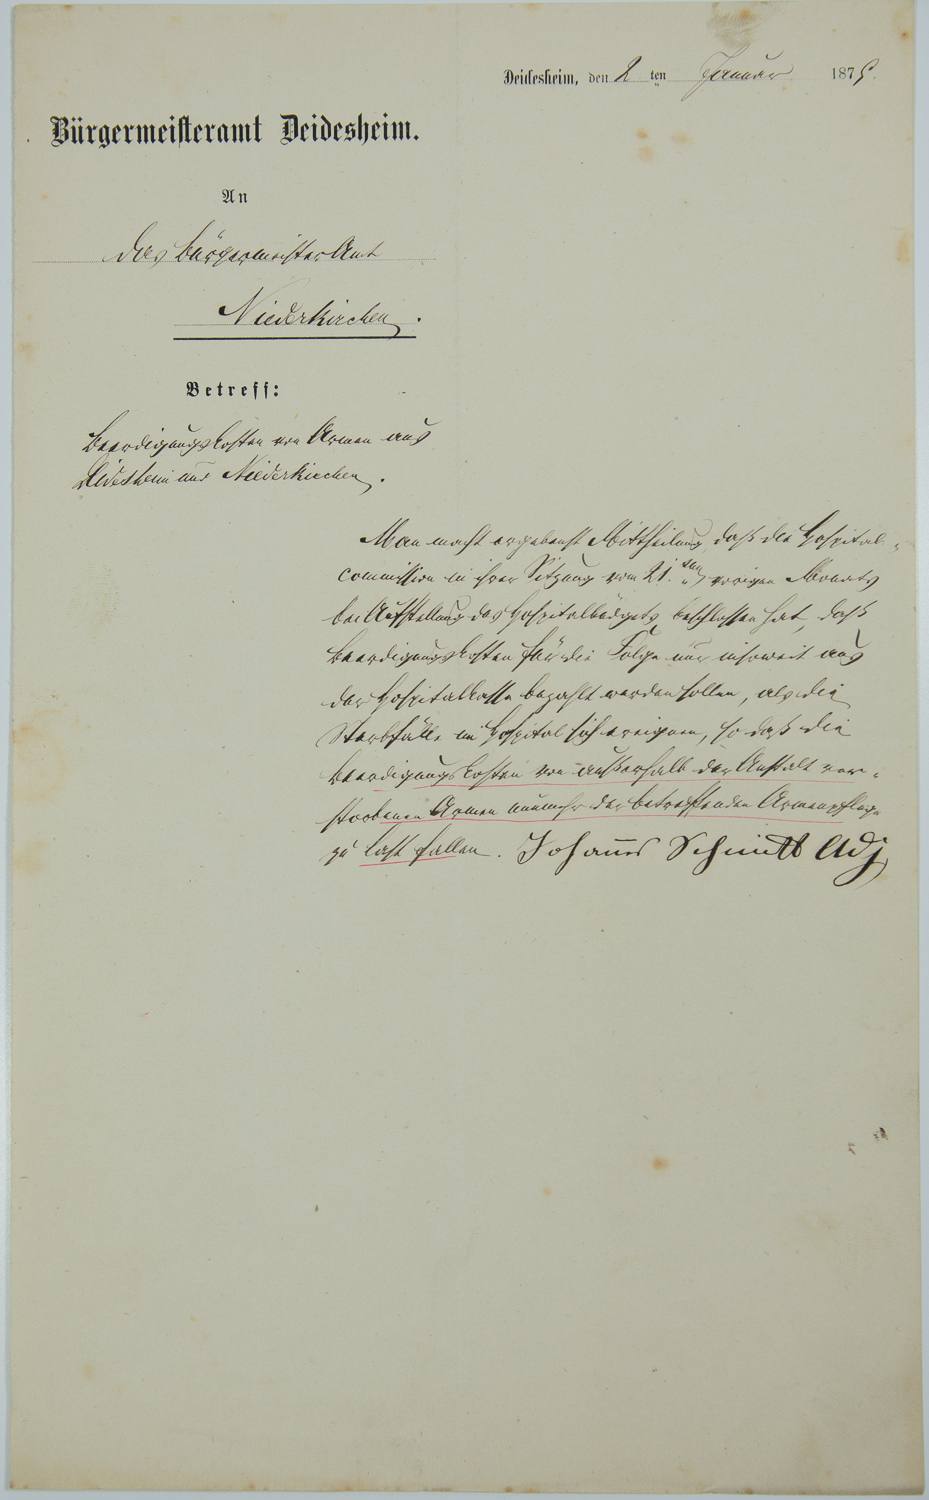 Deidesheim, den 2 ten Januar 1875.
Bürgermeisteramt Deidesheim.
An
das Bürgermeister Amt
Niederkirchen.
Betreff:
Beerdigungskosten von Armen aus
Deidesheim und Niederkirchen.
Man macht ergebenst Mittheilung, daß die Hospital-
commission in ihrer Sitzung vom 21. ten vorigen Monats
bei Aufstellung des Hospitalbüdgets beschlossen hat, daß
Beerdigungskosten für die Folge nur insoweit aus
der Hospitalkasse bezahlt werden sollen, als die
Sterbfälle im Hospital sich ereignen, so daß die
Beerdigungskosten von außerhalb der Anstalt ver-
storbenen Armen nunmehr der betreffenden Armenpflege
zu last fallen. Johannes Schmitt Adj